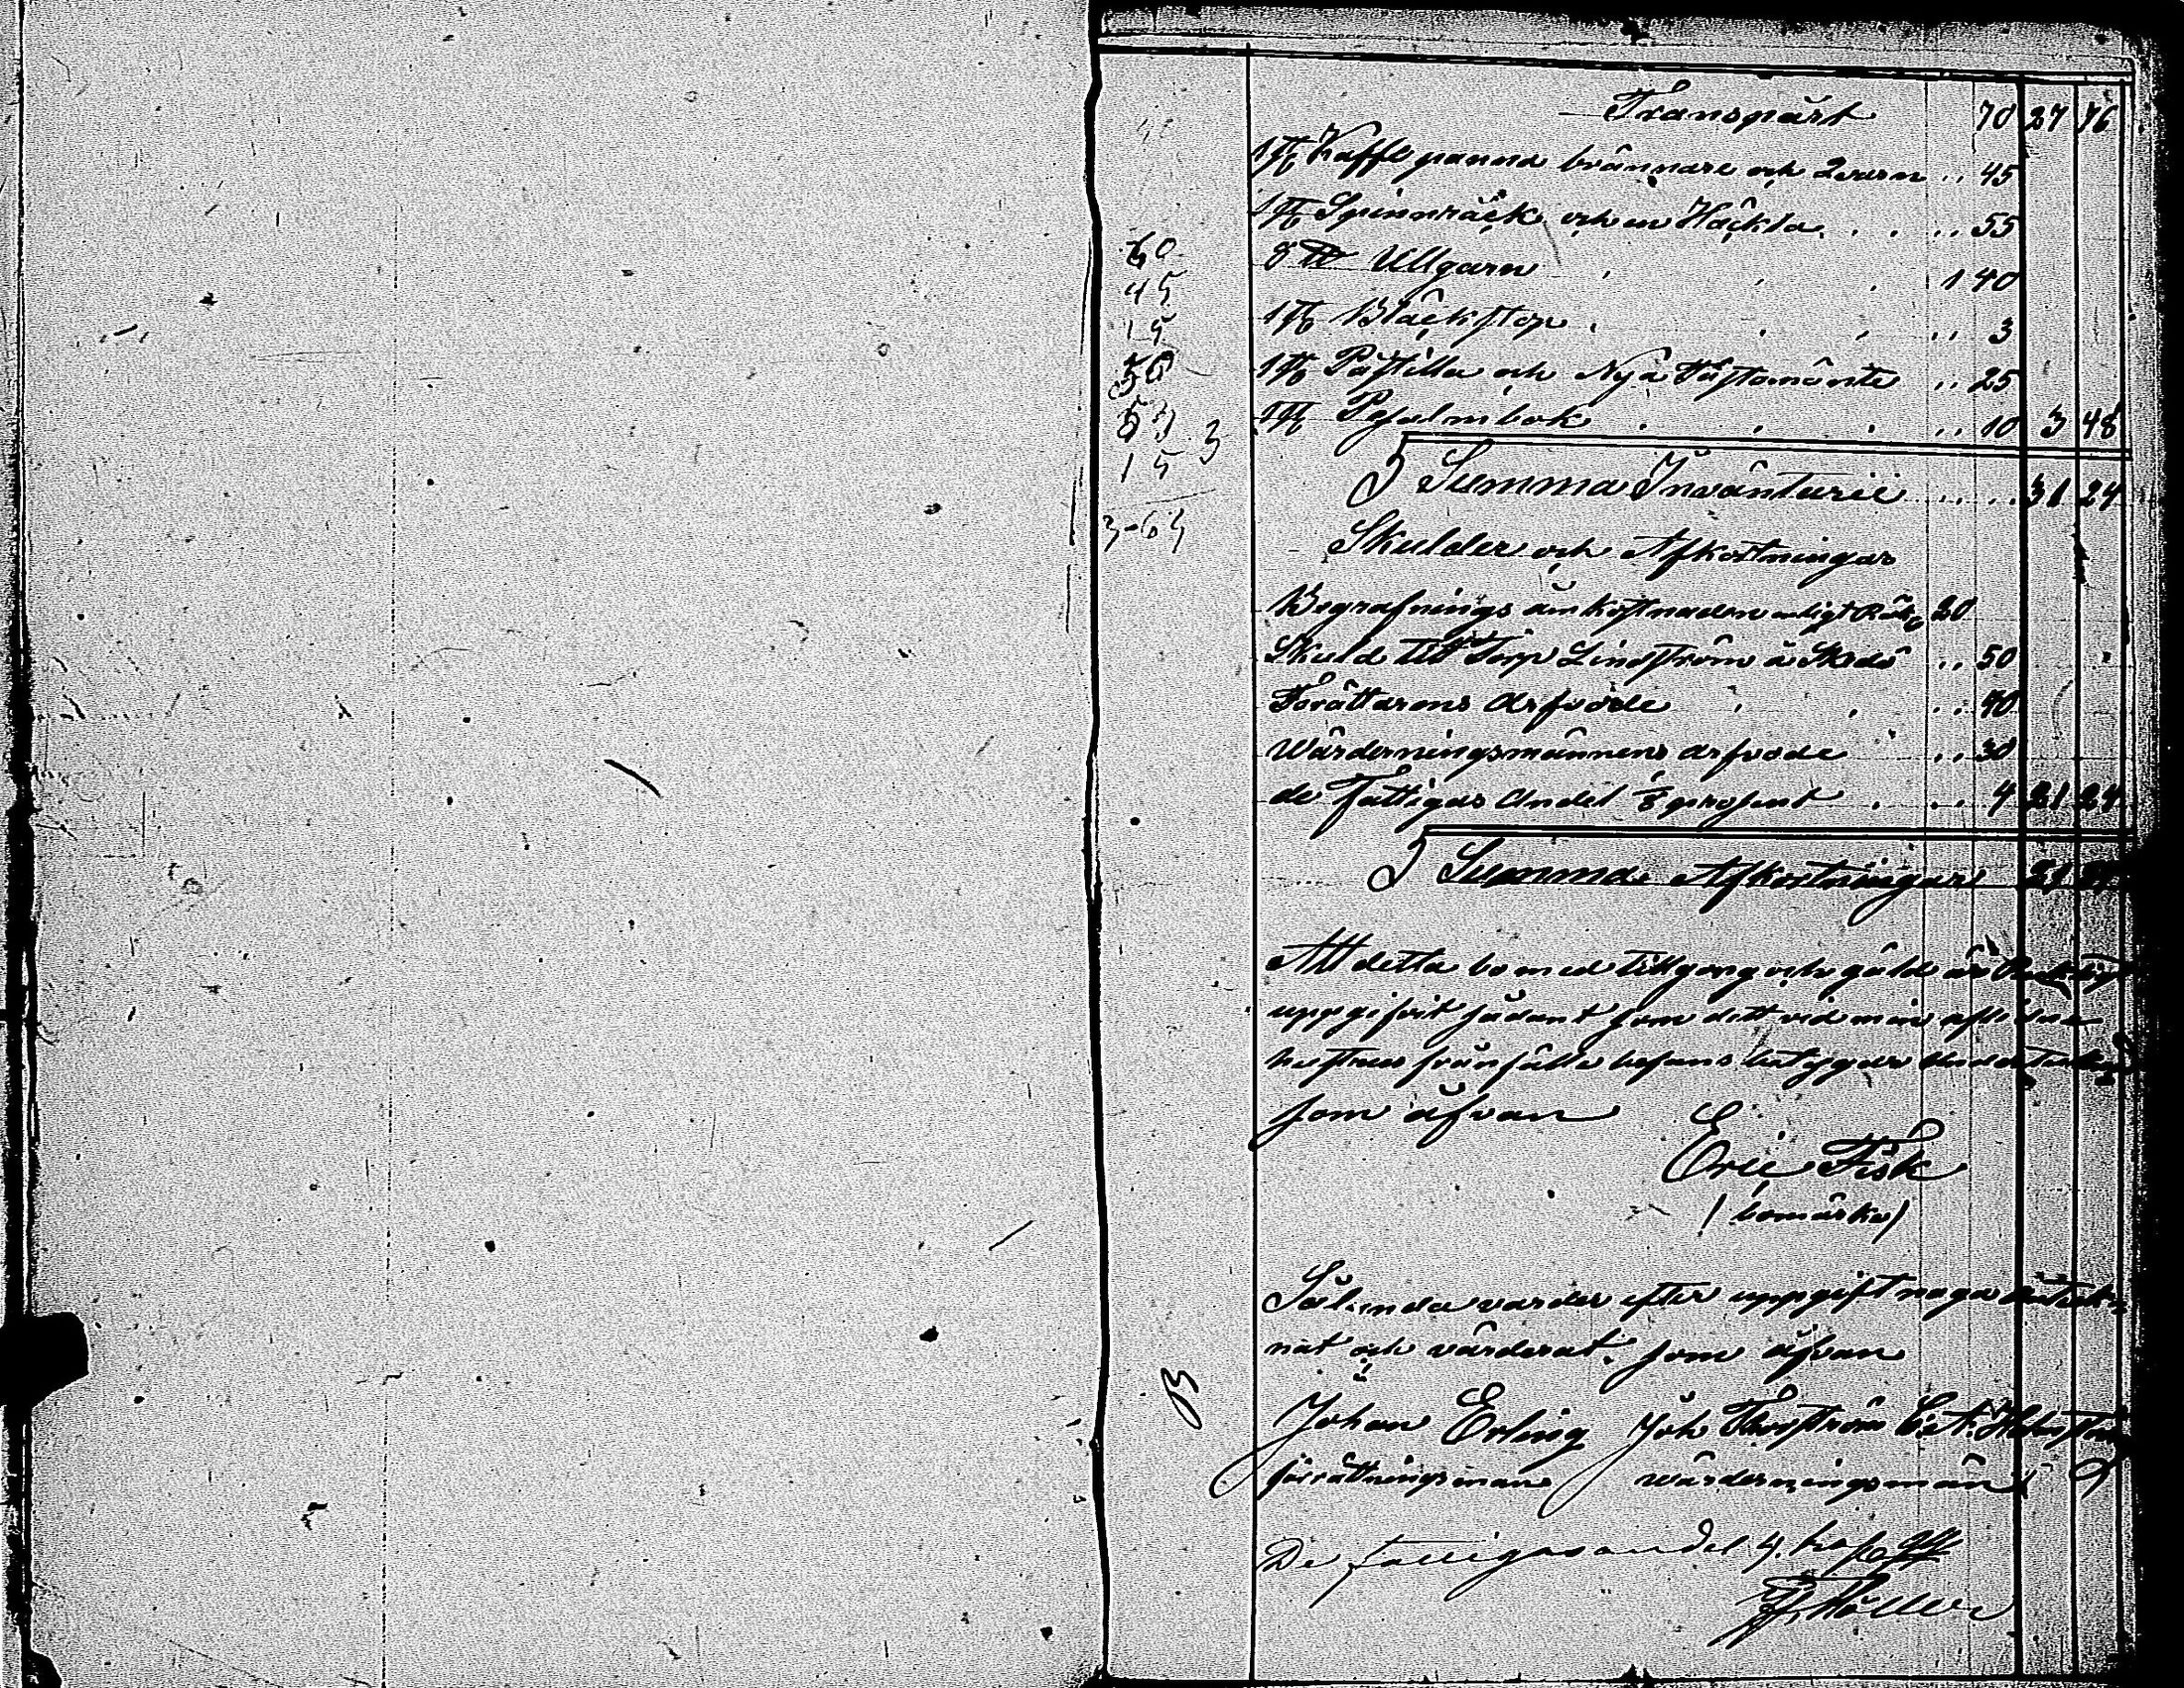 Transpårt 70 27 76
1 st Kaffepanna brännare och Qvarn .. 45
1 st Spinnråck och en Häckla . . .. 55
8 ℔ Ullgarn 1 40
1 st Bläckstop . . . .. 3
1 st Påstilla och Nya Tästamänte .. 25
1 st Psalmbok . . . .. 10 3 48
60
45
15
50
53
15
3
3-65
Summa Invänturie .. .. 31 24
Skulder och Afkortningar
Begrafnings åmkostnaden enligt Räk 20
Skuld till Torp Lindström å Skedö .. 50
Forättarens Arfvode . . .. 40
Wärderningsmännens arfvode .. 30
de Fattigas Andel 1/8 prosent . .. 4 21 24
Summa Afkortningar 21 24
Att detta bo med tillgong och gäld är
uppgifvit sådant som dett vid min aflidna
hustrus frånfälle befans betyggar
som åfvan
Eric Fisk
(bomärke)
Sålunda varder efter uppgift noga antek
nat och värderat. som åfvan
Johan Erling Joh
förrättningsman wärderningsmän
De fattigas andel 4. kop
Möller